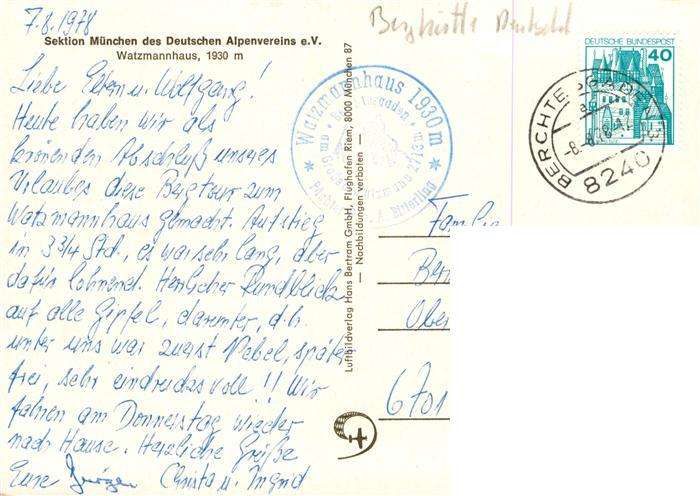 7.8.1978
Sektion München des Deutschen Alpenvereins e.V.
Watzmannhaus, 1930 m
Liebe Eltern u. Wolfgang!
Heute haben wir als
krönenden Abschluß unseres
Urlaubes diese Bergtour zum
Watzmannhaus gemacht. Aufstieg
in 3 3/4 Std., es war sehr lang, aber
dafür lohnend. Herrlicher Rundblick
auf alle Gipfel, darunter, d.h.
unter uns war zuerst Nebel, später
frei, sehr eindrucksvoll!! Wir
fahren am Donnerstag wieder
nach Hause. Herzliche Grüße
Eure Jürgen Christa u. Ingrid
Luftbildverlag Hans Bertram GmbH, Flughafen Riem, 8000 München 87
— Nachbildungen verboten —
Watzmannhaus 1930 m
DEUTSCHE BUNDESPOST
40
BERCHTESGADEN
8240
Familie
Ober
6701